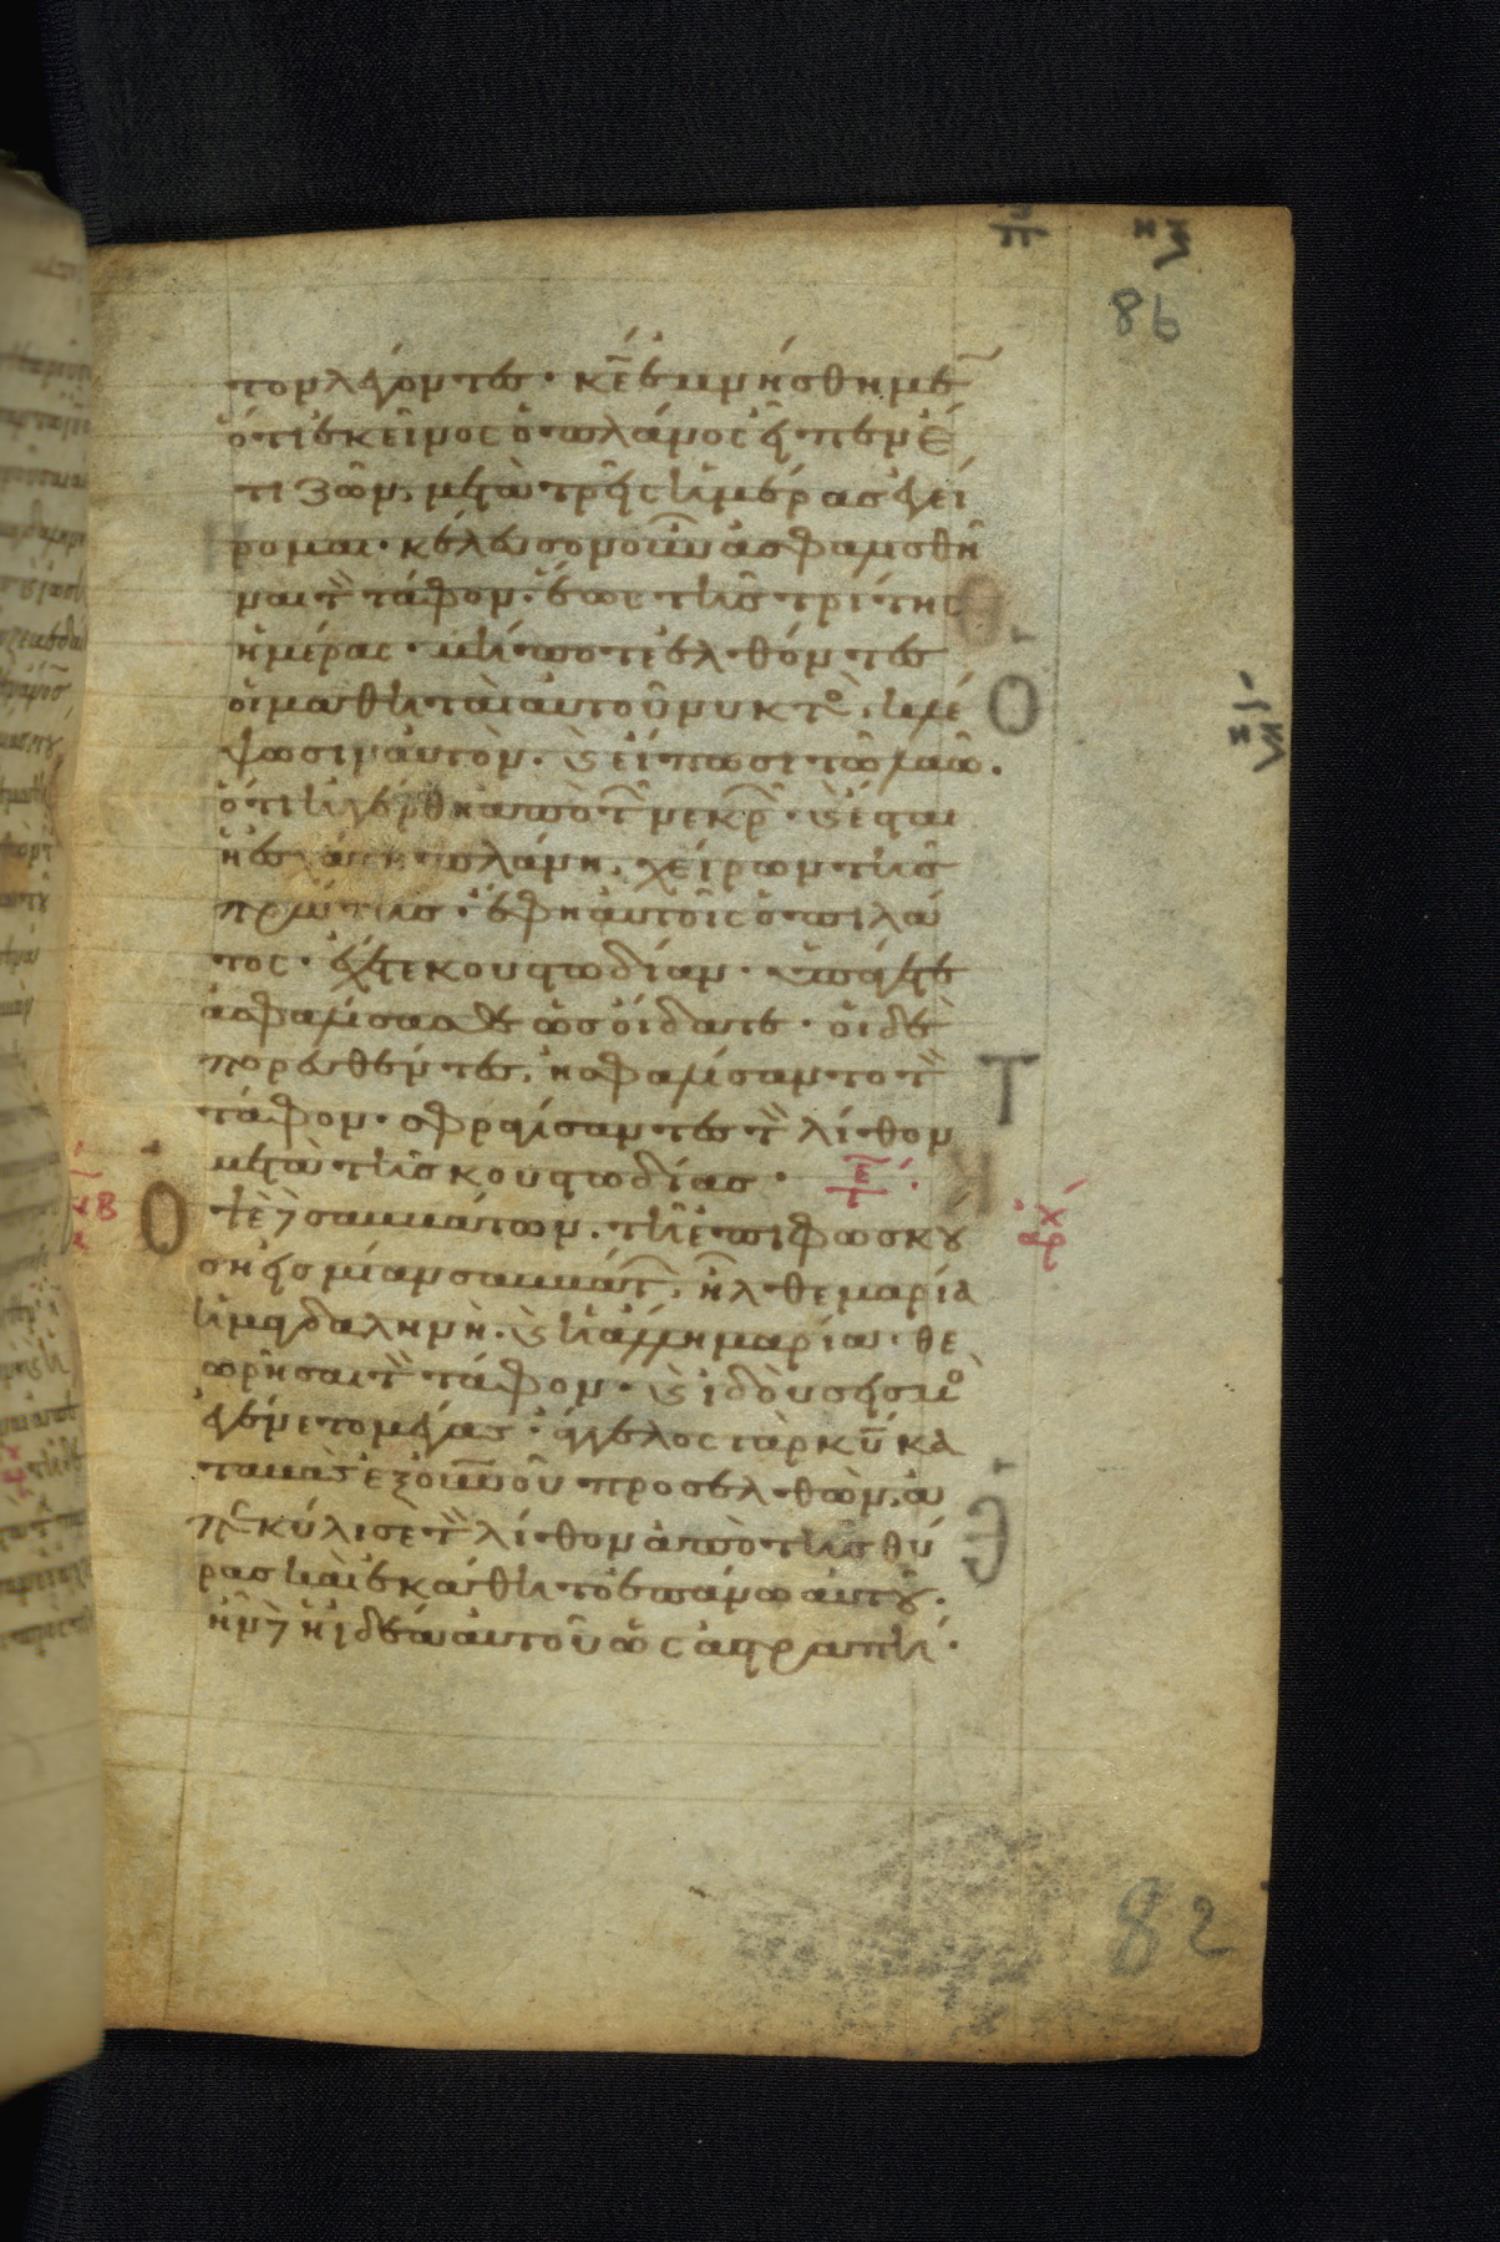 86
τον λέγοντες· κε̅ ἐμνήσθημε̅
ὅτι ἐκεῖνος ὁ πλάνος εἶπεν ἔ
τι ζῶν, μετὰ τρεῖς ἡμέρας ἐγεί
ρομαι· κέλευσον οὖν ἀσφαλισθῆ
ναι τὸν τάφον· ἕως τῆς τρίτης
ἡμέρας· μήποτε ἐλθόντες
οἱ μαθηταὶ αὐτοῦ νυκτο, κλέ
ψωσιν αὐτὸν. ϗ εἴπωσι τῶ λαῶ.
ὅτι ἠγέρθη ἀπὸ τ̅ νεκρ̅· ϗ ἔσται
ἡ ἐσχάτη πλάνη, χείρων τῆς
πρώτης· ἔφη αὐτοῖς ὁ πιλά
τος· ἔχετε κουστωδίαν· ὑπάγετε
ἀσφαλίσασθε ὡς οἴδατε· οἱ δὲ
πορευθέντες, ἠσφαλίσαντο τὸν
τάφον· σφραγίσαντες τὸν λίθον
μετὰ τῆς κουστωδίας·
Ὀψὲ δὲ σαββάτων. τῆ ἐπιφωσκού
ση εἰς μίαν σαββάτ, ἦλθε μαρία
ἡ μαγδαληνὴ. ϗ ἡ ἄλλη μαρία· θε
ωρῆσαι τὸν τάφον· ϗ ἰδοὺ σεισμο
ἐγένετο μέγας· ἄγγελος γὰρ κυ̅ κα
ταβὰς ἐξ οὐνοῦ προσελθὼν, ἀ
πεκύλισε τὸν λίθον ἀπὸ τῆς θύ
ρας καὶ ἐκάθητο ἐπάνω αὐτοῦ.
ἦν δὲ ἡ ἰδέα αὐτοῦ ὡς ἀστραπὴ·
82